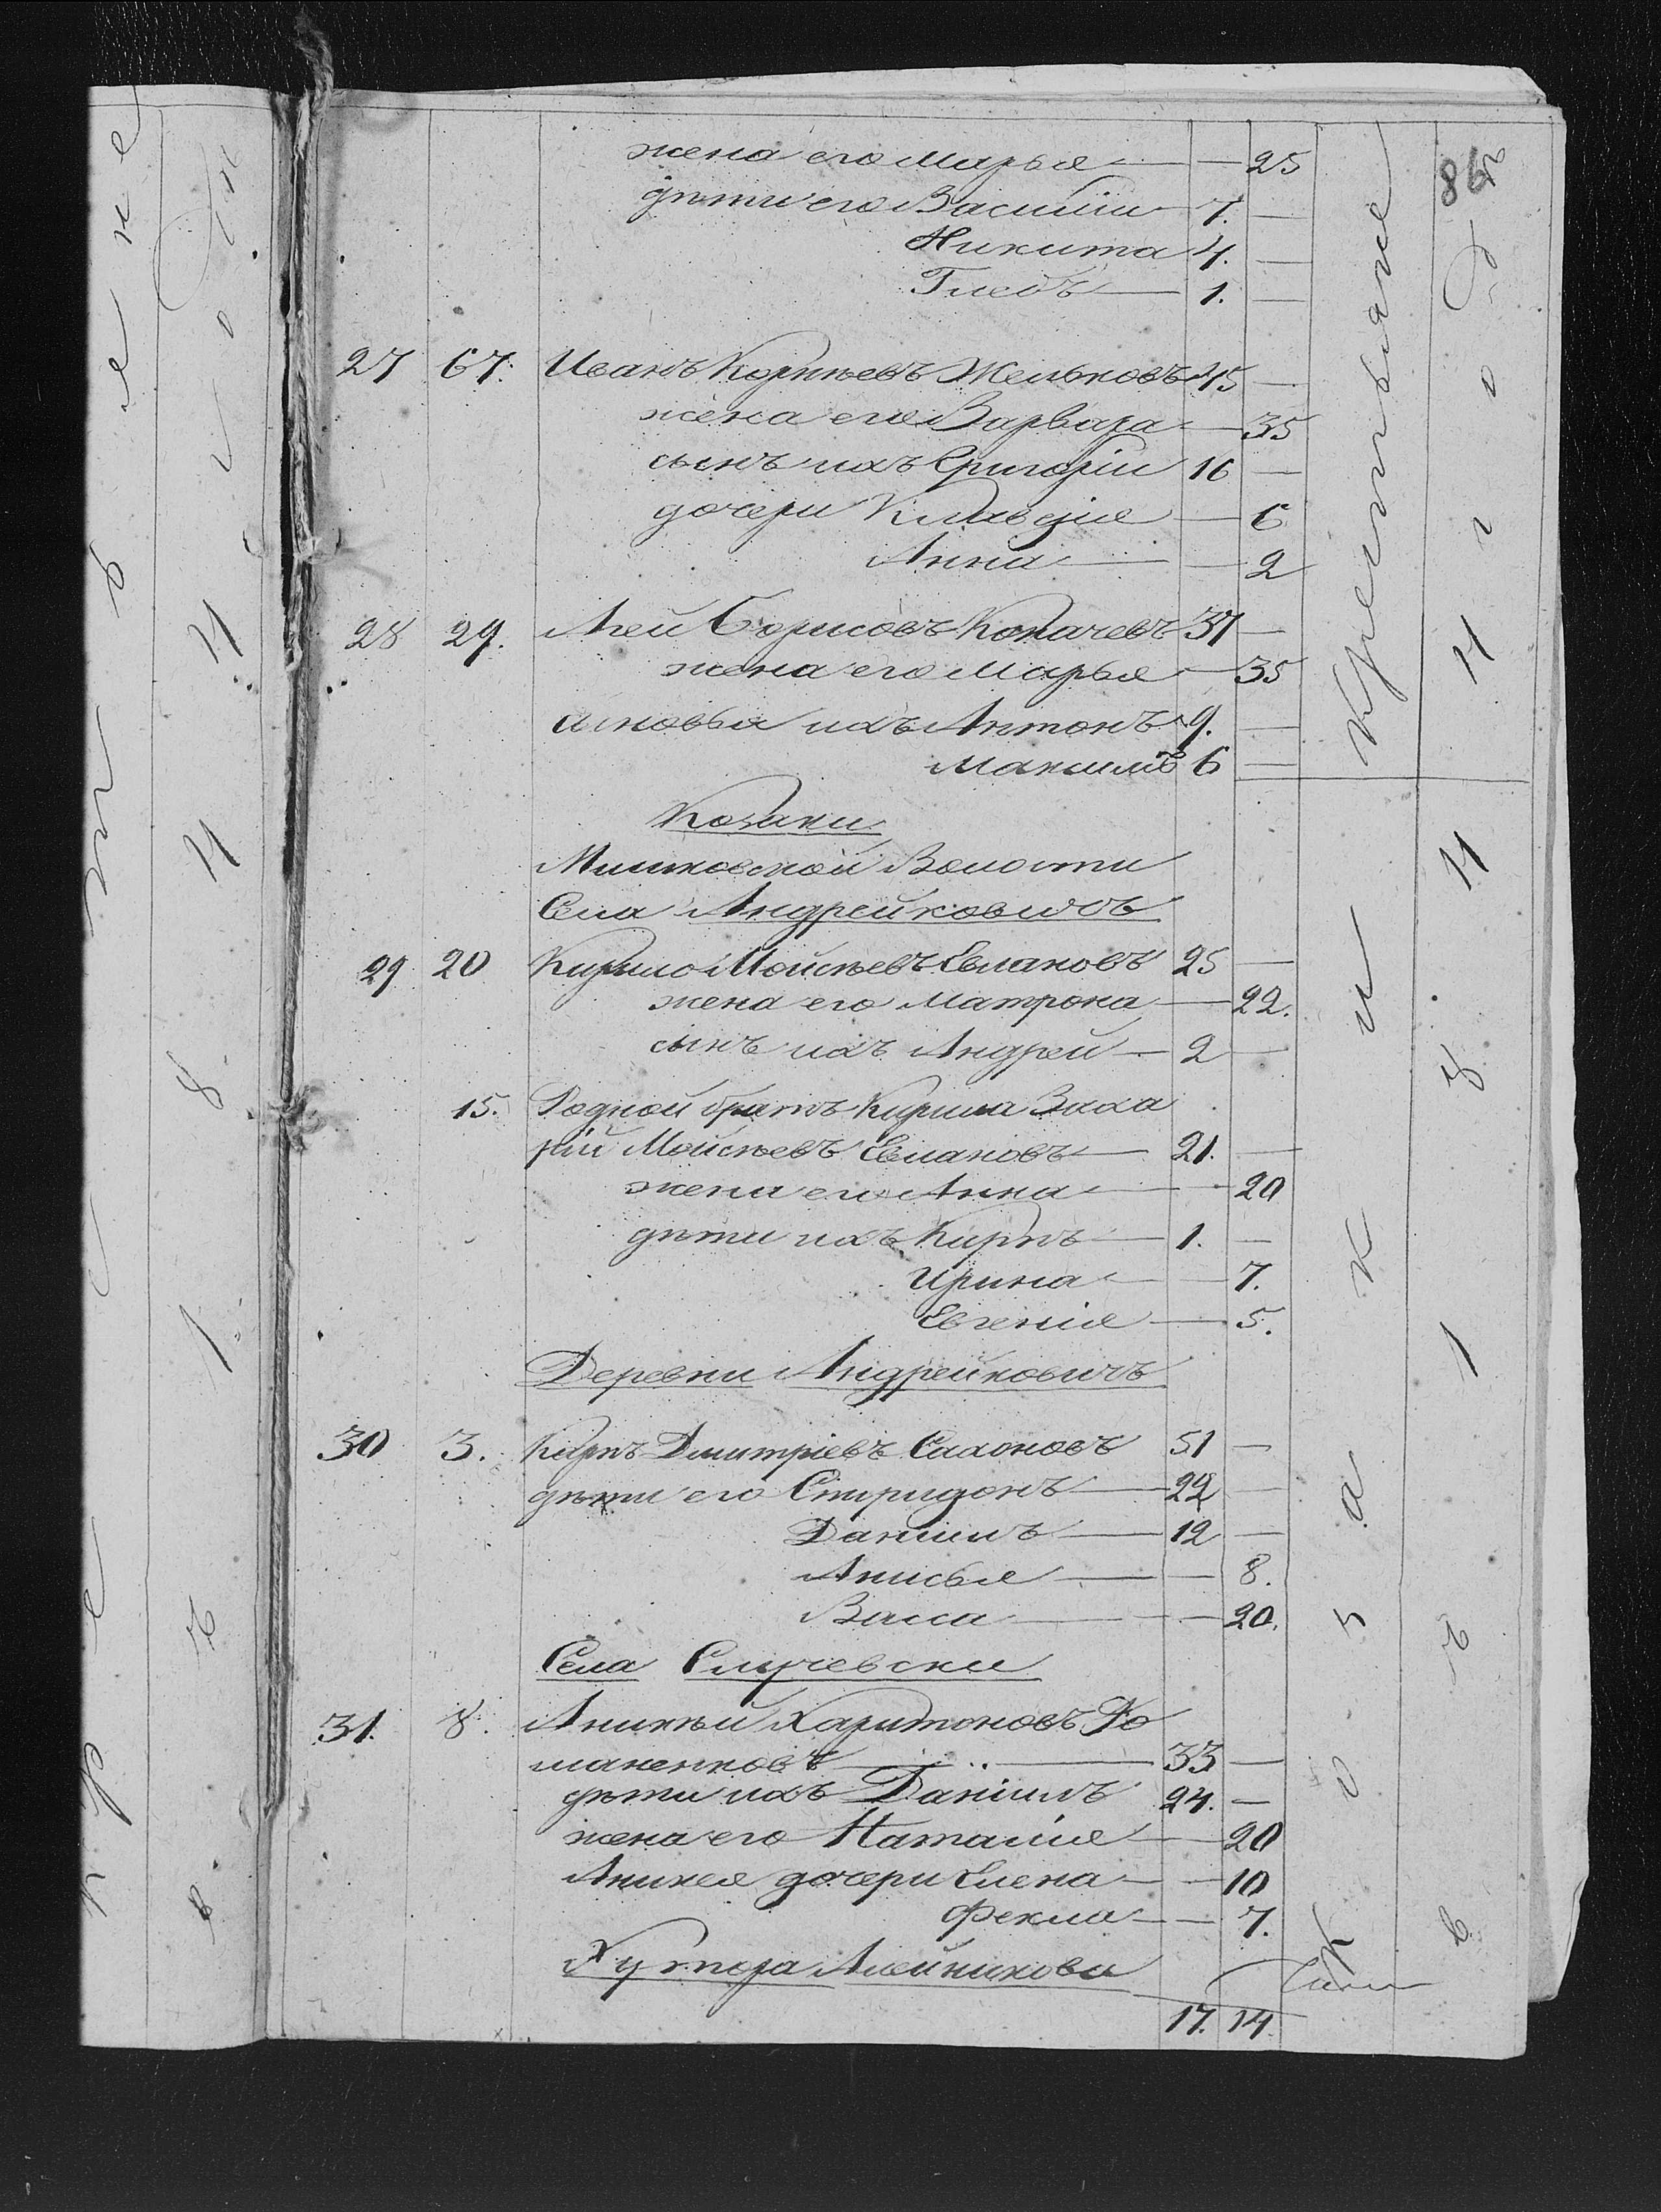 86
жена его Марья — — 25
дѣти его Василій 7. —
Никита 4. —
Глебъ — 1. —
27 67. Иванъ Корнѣевъ Желновъ 45 —
жена его Варвара — 35
сынъ ихъ Григорій 16 —
дочери Клавдія — 6
Анна — — 2
28 29. Агей Борисовъ Копачевъ 37 —
жена его Марья — 35
сыновья ихъ Антонъ 9. —
Максимъ 6 —
Козаки
Мишковской Волости
Села Андрейковичъ
29 20 Кирило Мойсѣевъ Евлановъ 25 —
жена его Матрона — 22.
сынъ ихъ Андрей — 2 —
15. Родной братъ Кирила Заха
рій Мойсѣевъ Евлановъ — 21. —
жена его Анна — — 20
дѣти ихъ Карпъ — 1. —
Ирина — — 7.
Евгенія — 5.
Деревни Андрейковичъ
30 3. Карпъ Дмитріевъ Сахоновъ 51 —
дѣти его Спиридонъ — 22 —
Даниилъ — 12 —
Анисья — — 8.
Васса — — 20.
Села Случевска
31. 8. Аникѣй Харитоновъ Ро
маненковъ — 33 —
дѣти ихъ Даніилъ 24. —
жена его Наталія — 20
Аникея дочери Елена — — 10
Фекла — — 7.
Хутора Алейникова
17. 14.
Крестьяне
Козаки